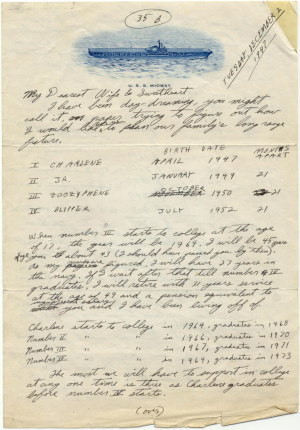 35 B
TUESDAY, DECEMBER 2
1947
U.S.S. MIDWAY
My Dearest Wife & Sweetheart
I have been day dreaming, you might
call it, on paper trying to figure out how
I would like to plan our family's long range
future.
BIRTH DATE MONTHS APART
I CHARLENE APRIL 1947
II JR. JANUARY 1949 21
III ZOOZYPHENE OCTOBER 1950 21
IV BLIPPER JULY 1952 21
When number III starts to college at the age
of 17, the year will be 1967, I will be 45 years
you about 43 (I should have passed you by then).
do my figured, I will have 27 years in
the navy. If I wait after that till number IV
graduates, I will retire with 11 years service
at the age of 49 and a pension equivalent to
you and I have been living off of.
Charlene starts to college in 1964, graduates in 1968
Number II " " in 1966, " in 1970
Number III " " in 1967, " in 1971
Number IV " " in 1969, " in 1973
The most we will have to support in college
at any one time is three as Charlene graduates
before number IV starts.
(over)